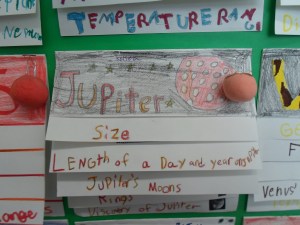 TEMPERATURE RAN
JUPiter
Size
LENgTH of a Day and year on
JUPitar's Moons
Rings
Jupiter
Venus'